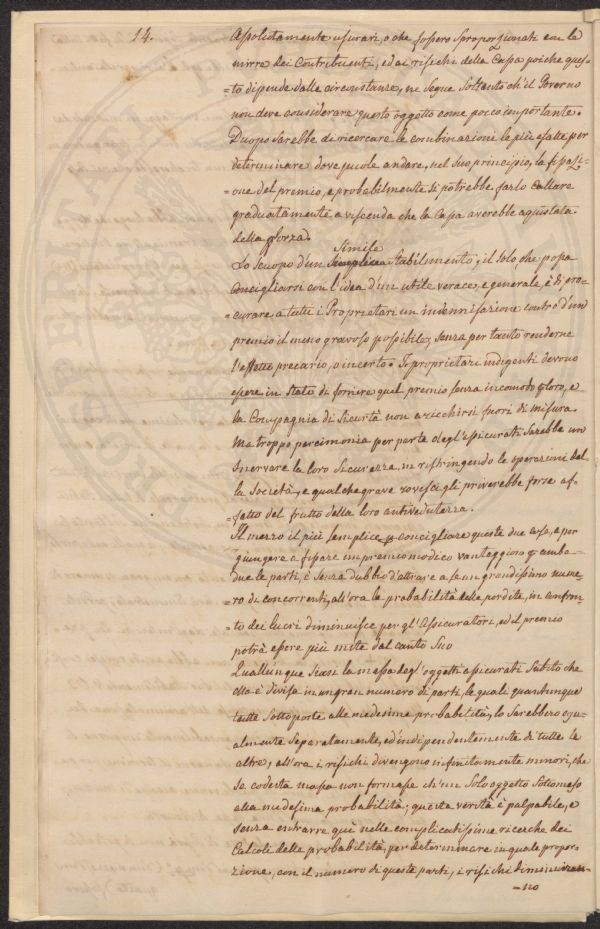 14.
assolutamente usurarj, o che fossero sproporzionati con le
mire dei Contribuenti, ed ai risichi della Cassa poiche ques-
=to dipende dalle circonstanze, ne segue soltanto ch'il Governo
non deve considerare questo oggetto come pocco importante.
Duopo sarebbe di ricercare le combinazioni le più esatte per
determinare dove puole andare, nel suo principio, la fissazi-
=one del premio, e probabilmente si potrebbe farlo callare
graduatamente a viscenda che la Cassa averebbe aquistata
della forza.
Simile
Lo scuopo d'un Stabilimento, il solo, che possa
consigliarsi con l'idea d'un utile verace, e generale, è di pro-
=curare a tutti i Proprietari un indennisazione contro d'un
premio il meno gravoso possibile, senza per tanto renderne
l'effetto precario, o incerto. I proprietari indigenti devono
essere in stato di fornire quel premio senza incomodo loro, e
la Compagnia di Sicurtà non aricchirsi fuori di misura.
Ma troppo parcimonia per parte degl'assicurati sarebbe un
snervare la loro sicurezza, ne ristringendo le operazioni del
la Società, e qualche grave rovescio gli priverebbe forse af-
=fatto del frutto della loro antivedutezza.
Il mezzo il più semplice conciliare queste due cose, e per
giungere a fissare un premio modico vantaggioso amba-
due le parti, è senza dubbio d'attirare a se un grandissimo nume-
=ro di concorrenti, all'ora le probabilità delle perdite, in confron-
=to dei lucri diminuisce per gl'Assicuratori, ed il premio
potrà essere più mite dal canto suo
Quallunque siasi la massa degl'oggetti assicurati subito che
essa è divisa in un gran numero di parti, le quali quantunque
tutte sottoposte alle medesime probabilità, lo sarebbero egu-
almente separatamente, ed indipendentemente di tutte le
altre, all'ora i risichi divengono infinitamente minori, che
se codesta massa non formasse ch'un solo oggetto sottomesso
alla medesima probabilità; questa verità è palpabile, e
senza entrarre quì nelle complicatissime ricerche dei
Calcoli delle probabilità, per determinare in quale propor-
zione, con il numero di queste parti, i risichi diminuiran-
=no